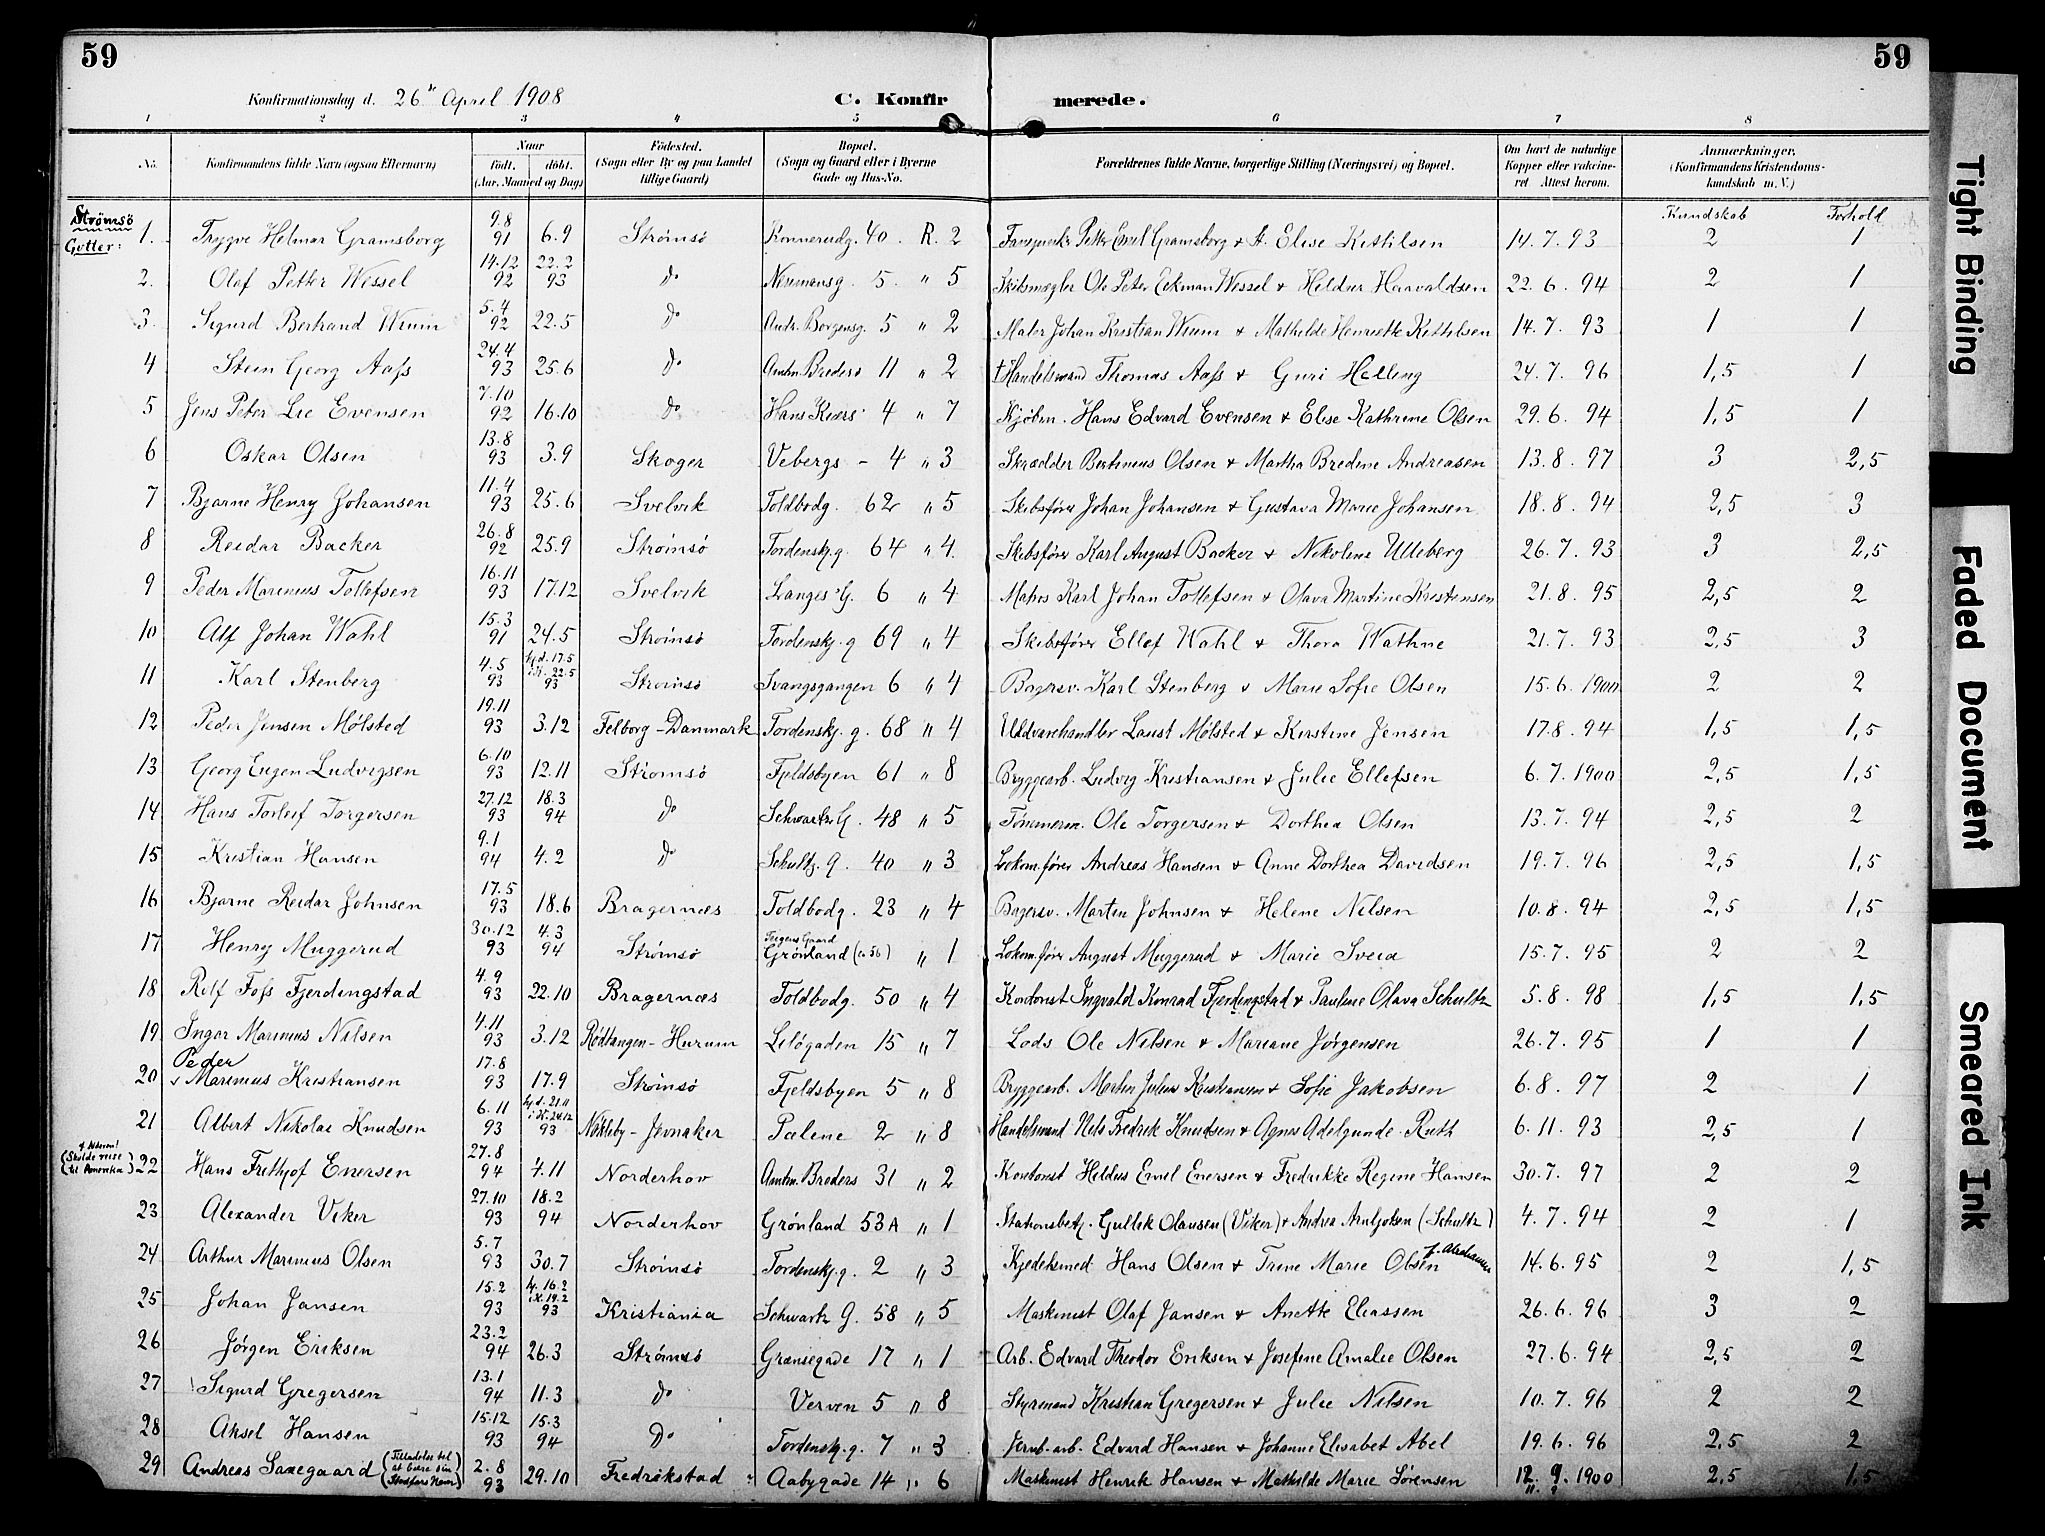 59
59
Konfirmationsdag d. 26de April 1908
C. Konfirmerede.
1 2 3 4 5 6 7 8
No. Konfirmandens fulde Navn (ogsaa Efternavn) Naar født. døbt. (Aar, Maaned og Dag) Fødested. (Sogn eller By og paa Landet tillige Gaard) Bopæl. (Sogn og Gaard eller i Byerne Gade og Hus-No. Forældrenes fulde Navne, borgerlige Stilling (Næringsvei) og Bopæl. Om havt de naturlige Kopper eller vaccineret Attest herom. Anmærkninger, (Konfirmandens Kristendomskundskab m. V.)
Strømsö
Gutter:
Kundskab Forhold
1. Trygve Helmer Gramsborg 9.8 91 6.9 Strømsö Konnerudg. 40. R. 2 Petter Emil Gramsborg & A. Elise Kittilsen 14.7.93 2 1
2. Olaf Petter Wessel 14.12 92 22.2 93 do Niremansg. 5. " 5 Skibsmægler Ole Peter Eckman Wessel & Hildur Harvaldsen 22.6.94 2 1
3. Sigurd Bertrand Wium 5.4 92 22.5 do Andr. Borgensg. 5 " 2 Maler Johan Kristian Wium & Mathilde Henriette Kittilsen 14.7.93 1 1
4 Stein Georg Aass 24.4 93 25.6 do Amtm. Breders 11 " 2 † Handelsmand Thomas Aass & Guri Helling 24.7.96 1,5 1
5 Jens Peter Lie Evensen 7.10 92 16.10 do Hans Kiærs 4 " 7 Kjøbm. Hans Edvard Evensen & Elise Kathrine Olsen 29.6.94 1,5 1
6 Oskar Olsen 13.8 93 3.9 Skoger Vebergs - 4 " 3 Skrædder Berthinius Olsen & Martha Bredine Andreasen 13.8.97 3 2,5
7 Bjarne Henry Johansen 11.4 93 25.6 Svelvik Toldbodg. 62 " 5 Skibsfører Johan Johansen & Gustava Marie Johansen 18.8.94 2,5 3
8 Reidar Backer 26.8 92 25.9 Strømsö Tordenskj.g. 64 " 4. Skibsfører Karl August Backer & Nikoline Ulleberg 26.7.93 3 2,5
9 Peder Marinius Tollefsen 16.11 93 17.12 Svelvik Langes G. 6 " 4 Matros Karl Johan Tollefsen & Olava Martine Kristensen 21.8.95 2,5 2
10 Alf Johan Wahl 15.3 91 24.5 Strømsö Tordenskj.g 69 " 4 Skibsfører Ellef Wahl & Thora Wathne 21.7.93 2,5 3
11 Karl Stenberg 4.5 93 hj.d. 17.5 i K. 22.5 93 Strømsö Svangsgangen 6 " 4 Bagersv. Karl Stenberg & Marie Sofie Olsen 15.6.1900 2 2
12 Peder Jensen Mølsted 19.11 93 3.12 Felborg - Danmark Tordenskj. g. 68 " 4 Uldvarehandler Laust Mølsted & Kirstine Jensen 17.8.94 1,5 1,5
13 Georg Eugen Ludvigsen 6.10 93 12.11 Strømsö Fjeldsbyen 61 " 8 Bryggearb. Ludvig Kristiansen & Julie Ellefsen 6.7.1900 2,5 1,5
14 Hans Torleif Torgersen 27.12 93 18.3 94 do Schwartz G. 48 " 5 Tømmerm. Ole Torgersen & Dorthea Olsen 13.7.94 2,5 2
15 Kristian Hansen 9.1 94 4.2 do Schultz. G. 40 " 3 Lokom.fører Andreas Hansen & Anne Dorthea Davidsen 19.7.96 2,5 1,5
16 Bjarne Reidar Johnsen 17.5 93 18.6 Bragernæs Toldbodg. 23 " 4 Bagersv. Martin Johnsen & Helene Nilsen 10.8.94 2,5 1,5
17 Henry Muggerud 30.12 93 4.3 94 Strømsö Gaard Grønland " 1 Lokom.fører August Muggerud & Marie Svea 15.7.95 2 2
18 Rolf Foss Fjerdingstad 4.9 93 22.10 Bragernæs Toldbodg. 50 " 4 Kontorist Ingvald Konrad Fjerdingstad & Pauline Olava Schultz 5.8.98 1,5 1,5
19 Ingar Marinius Nilsen 4.11 93 3.12 Rødtangen - Hurum Leløgaden 15 " 7 Lods Ole Nilsen & Mariane Jørgensen 26.7.95 1 1
20 Peder Marinius Kristiansen 17.8 93 17.9 Strømsö Fjeldsbyen 5 " 8 Bryggearb. Martin Julius Kristiansen & Sofie Jakobsen 6.8.97 2 1
21 Albert Nikolai Knudsen 6.11 93 hj.d. 21.11 i K. 24.12 93 Nikleby - Jevnaker Pælene 2 " 8 Handelsmand Nils Fredrik Knudsen & Agnes Adelgunde Ruth 6.11.93 2,5 1
(Skulde reise til Amerika) 22 Hans Frithjof Enersen 27.8 94 4.11 Norderhov Amtm. Breders 31 " 2 Kontorist Hildus Emil Enersen & Fredrikke Regine Hansen 30.7.97 2 2
23 Alexander Viker 27.10 93 18.2 94 Norderhov Grønland 53A " 1 Stationsbetj. Gullik Olausen (Viker) & Andrea Arntjotsen (Schultz) 4.7.94 2 1
24 Arthur Marinius Olsen 5.7 93 30.7 Strømsö Tordenskj.g. 2 " 3 Kjedelsmed Hans Olsen & Trine Marie Olsen f. Abrahamsen 14.6.95 2 1,5
25 Johan Jansen 15.2 93 hj. 16.2 i K. 19.2 93 Kristiania Schwartz G. 58 " 5 Maskinist Olaf Jansen & Anette Eliassen 26.6.96 3 2
26 Jørgen Eriksen 23.2 94 26.3 Strømsö Grænsegade 17 " 1 Arb. Edvard Theodor Eriksen & Josefine Amalie Olsen 27.6.94 2,5 2
27 Sigurd Gregersen 13.1 94 11.3 do Verven 5 " 8 Styrmand Kristian Gregersen & Julie Nilsen 10.7.96 2 2
28 Aksel Hansen 15.12 93 15.3 94 Do Tordenskj.g. 7 " 3 Jernb.-arb. Edvard Hansen & Johanne Elisabet Abel 19.6.96 2,5 2
29 Andreas Saxegaard (Tilladelse til at bære sin Stedfars Navn) 2.8 93 29.10 Fredrikstad Aabygade 14 " 6 Maskinist Henrik Hansen & Mathilde Marie Sørensen 12.9.1900 2,5 1,5
Tight Binding
Faded Document
Smeared Ink